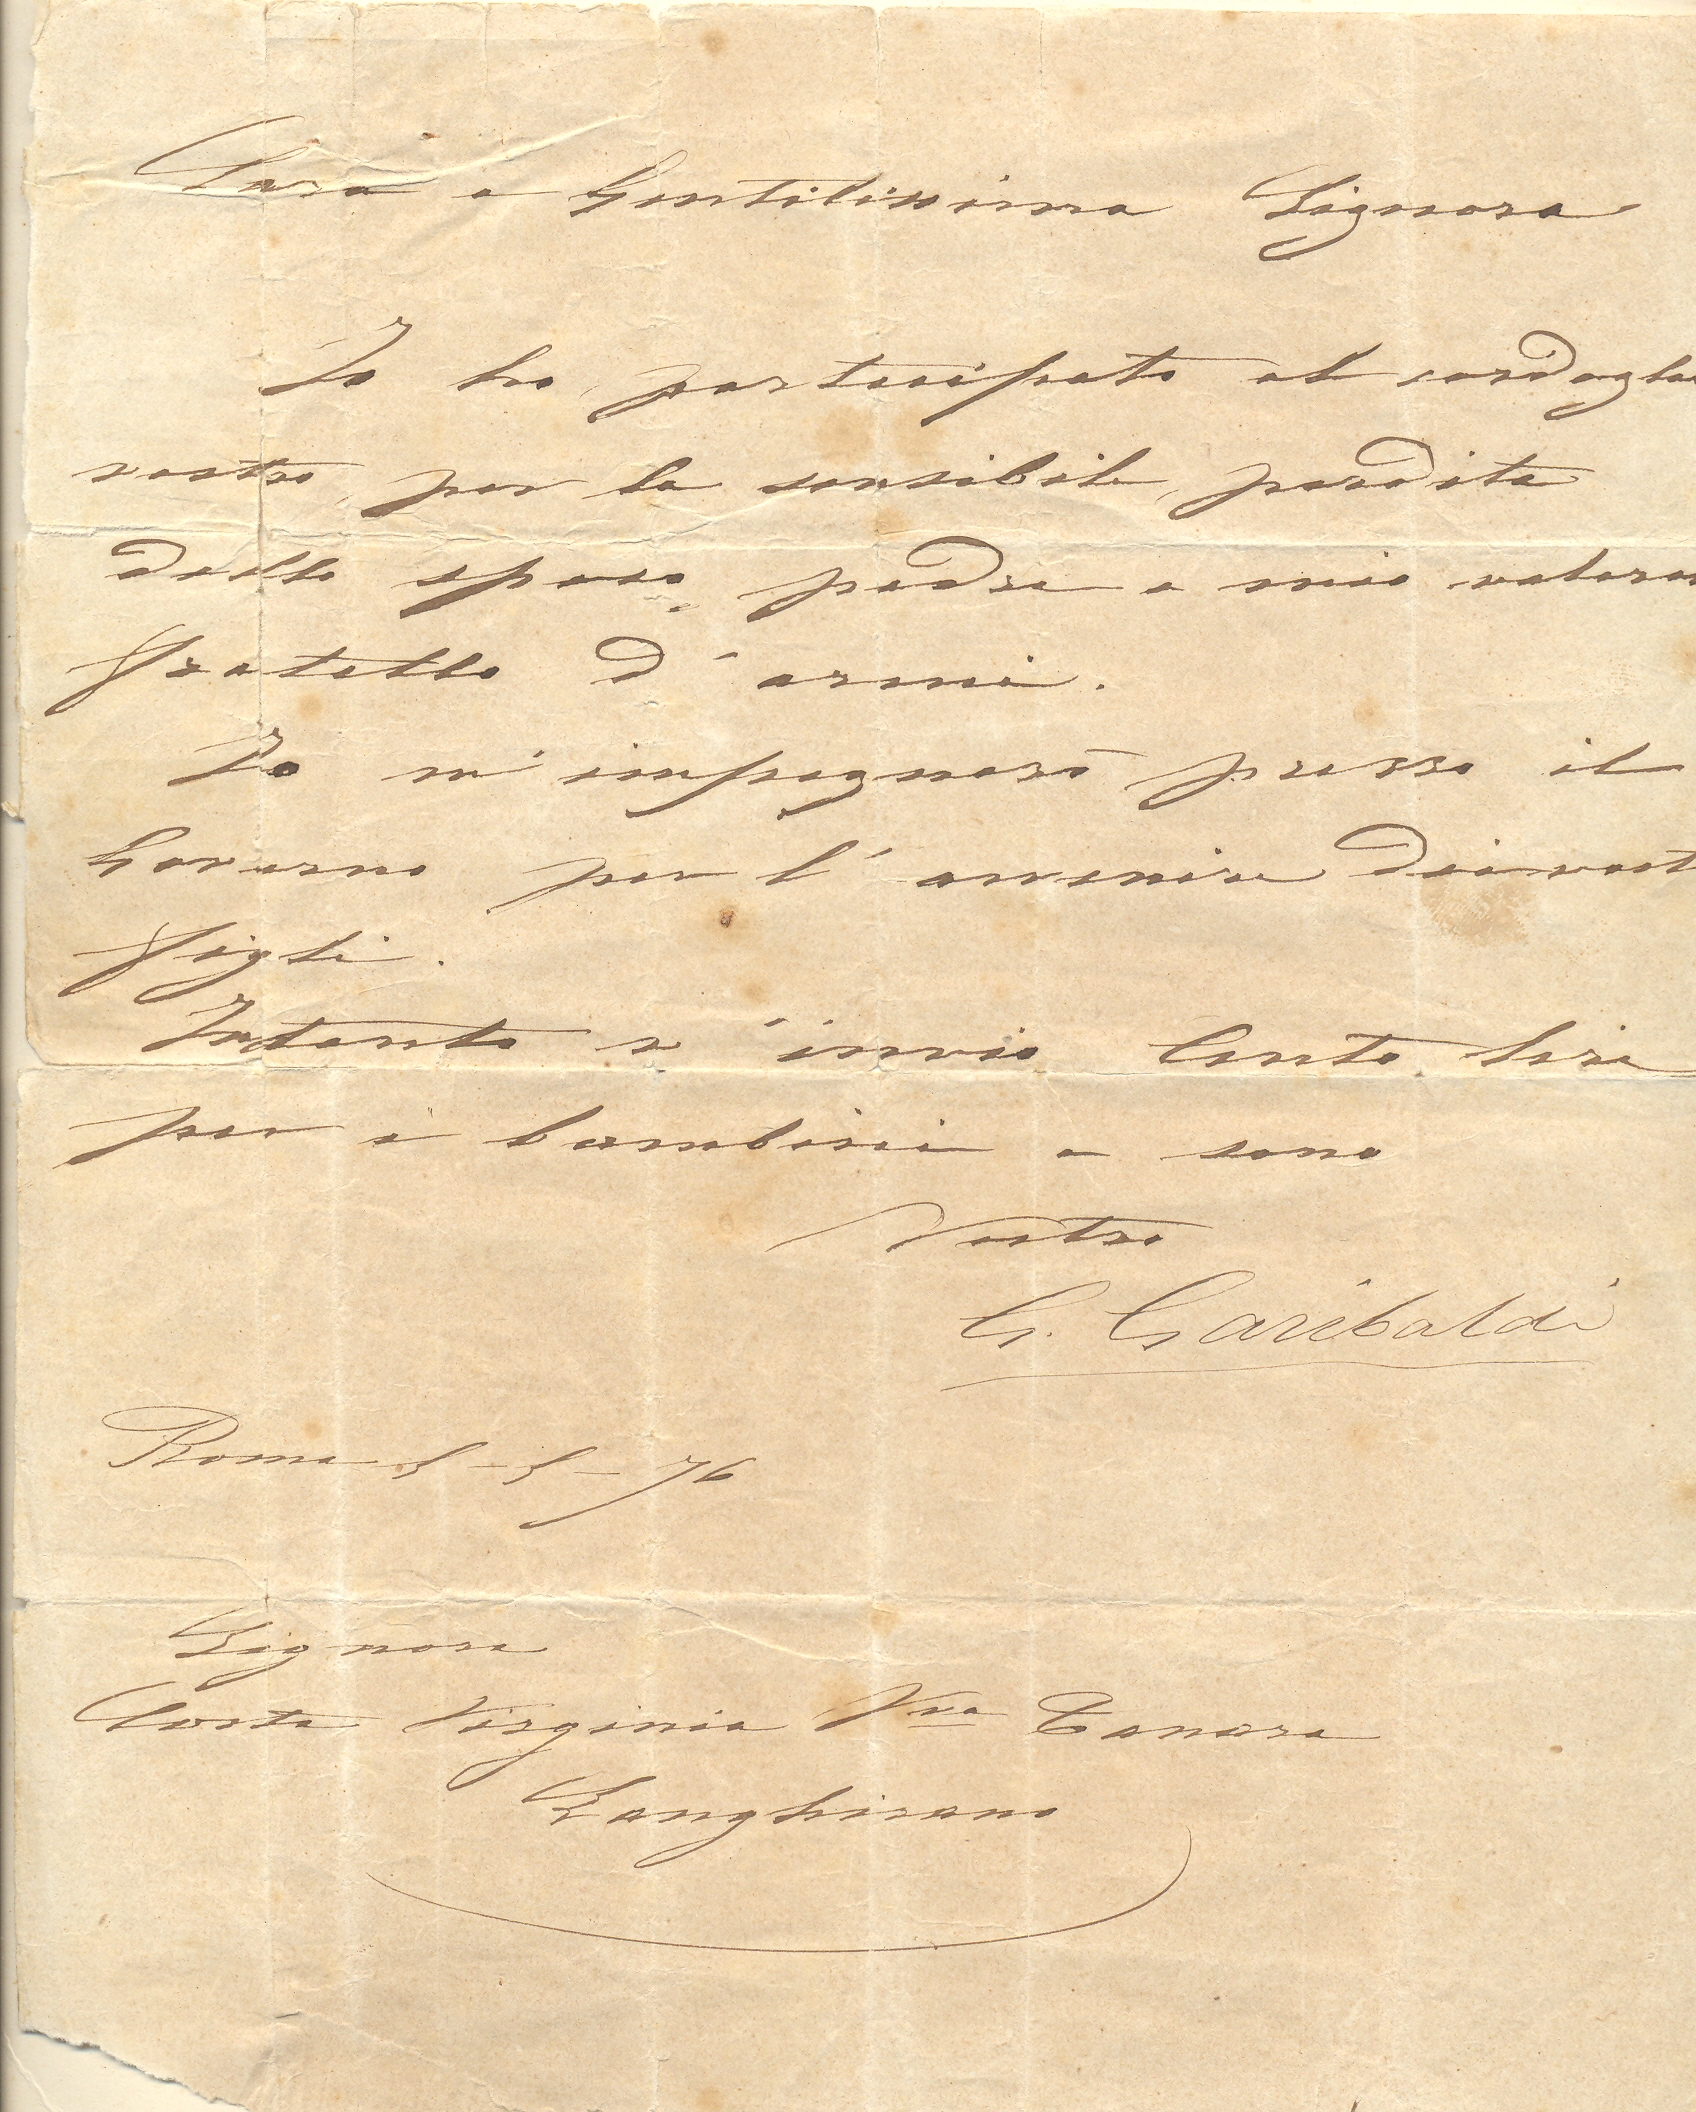 Cara e Gentilissima Signora
Io ho participato al cordoglio
vostro, per la sensibile perdita
dello sposo, padre e mio valoros
fratello d'armi.
Io m'impegnerò presso il
Governo per l'avvenire dei vost
figli.
Intanto v'invio Cento lire
per i bambini e sono
Vostro
G. Garibaldi
Roma 5-5-76
Signora
Costa Virginia Vva Tanara
Langhirano